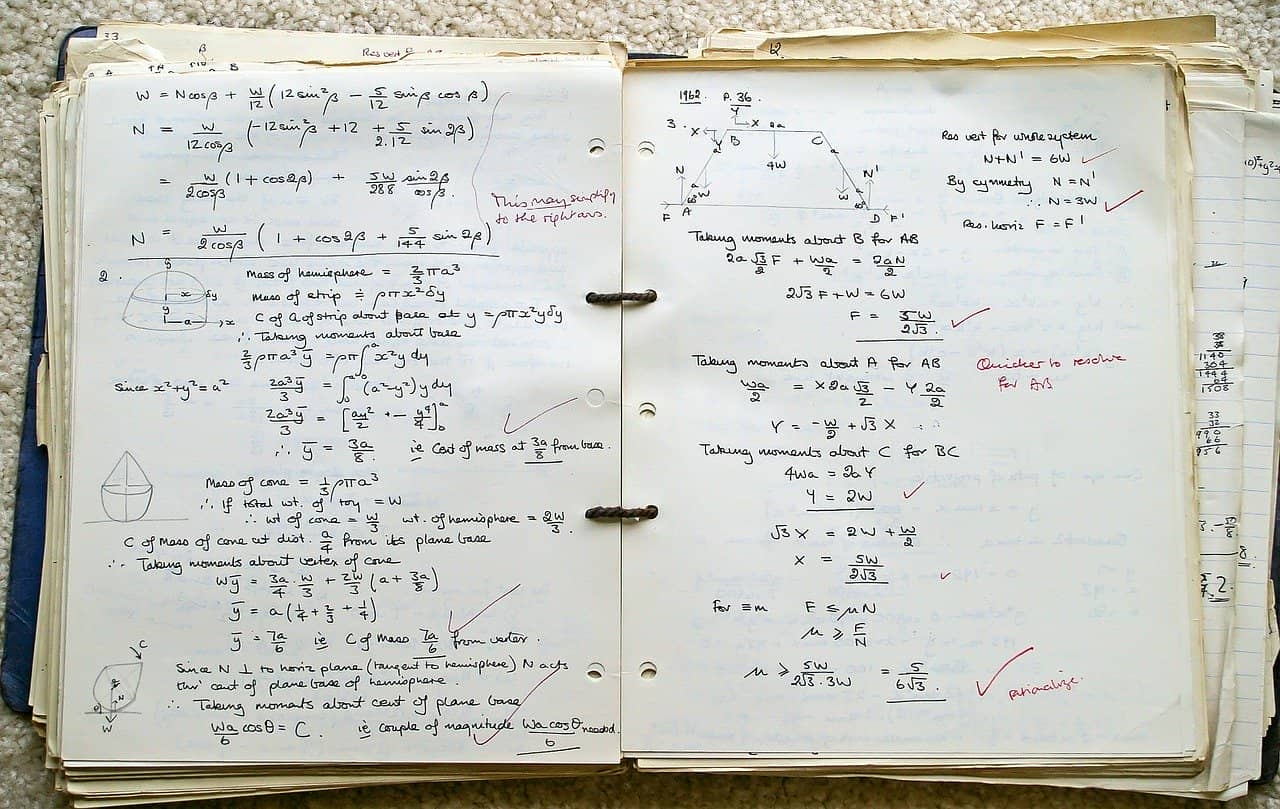 33
β
Res vert
W = Ncosβ + W/12 (12sin²β − 5/12 sinβ cosβ)
N = W/12cosβ (−12sin²β + 12 + 5/2.12 sin2β)
= W/2cosβ (1 + cos2β) + 5W/288 sin2β/cosβ.
This may simplify
to the right ans.
N = W/2cosβ (1 + cos2β + 5/144 sin2β)
2.
y
x
δy
y
a
x
Mass of hemisphere = 2/3 πa³
Mass of strip ≑ ρπx²δy
C of G of strip about base at y = ρπx²yδy
∴ Taking moments about base
2/3 ρπa³ ȳ = ρπ∫₀ᵃ x²y dy
Since x²+y²=a² 2a³ȳ/3 = ∫₀ᵃ (a²−y²)y dy
2a³ȳ/3 = [ay²/2 + − y⁴/4]₀ᵃ
∴ ȳ = 3a/8. ie Cent of mass at 3a/8 from base.
Mass of cone = 1/3 ρπa³
∴ If total wt. of toy = W
∴ wt of cone = W/3 wt. of hemisphere = 2W/3.
C of Mass of cone at dist. a/4 from its plane base
∴ Taking moments about vertex of cone
Wȳ = 3a/4 . W/3 + 2W/3 (a + 3a/8)
ȳ = a(1/4 + 2/3 + 1/4)
ȳ = 7a/6 ie C of Mass 7a/6 from vertex.
C
N
θ
W
Since N ⊥ to horiz plane (tangent to hemisphere) N acts
thro' cent of plane base of hemisphere.
∴ Taking moments about cent of plane base
Wa/6 cosθ = C. ie couple of magnitude Wa cosθ/6 needed.
12.
1962. P. 36.
3.
Y
X
X
Y
B
C
a
a
a
a
4W
N
W
W
N'
60°
60°
F
A
D
F'
Res vert for whole system
N+N' = 6W
By symmetry N = N'
∴ N = 3W
Res. horiz F = F'
Taking moments about B for AB
2a √3/2 F + Wa/2 = 2aN/2
2√3 F + W = 6W
F = 5W/2√3.
Taking moments about A for AB
Quicker to resolve
for AB
Wa/2 = X 2a √3/2 − Y 2a/2
Y = −W/2 + √3 X
Taking moments about C for BC
4Wa = 2aY
Y = 2W
√3 X = 2W + W/2
X = 5W/2√3
For ≡m F ≤ μN
μ ≥ F/N
μ ≥ 5W/2√3.3W = 5/6√3.
rationalize.
38
38
1140
304
1444
64
1508
33
32
990
66
956
8.
2.